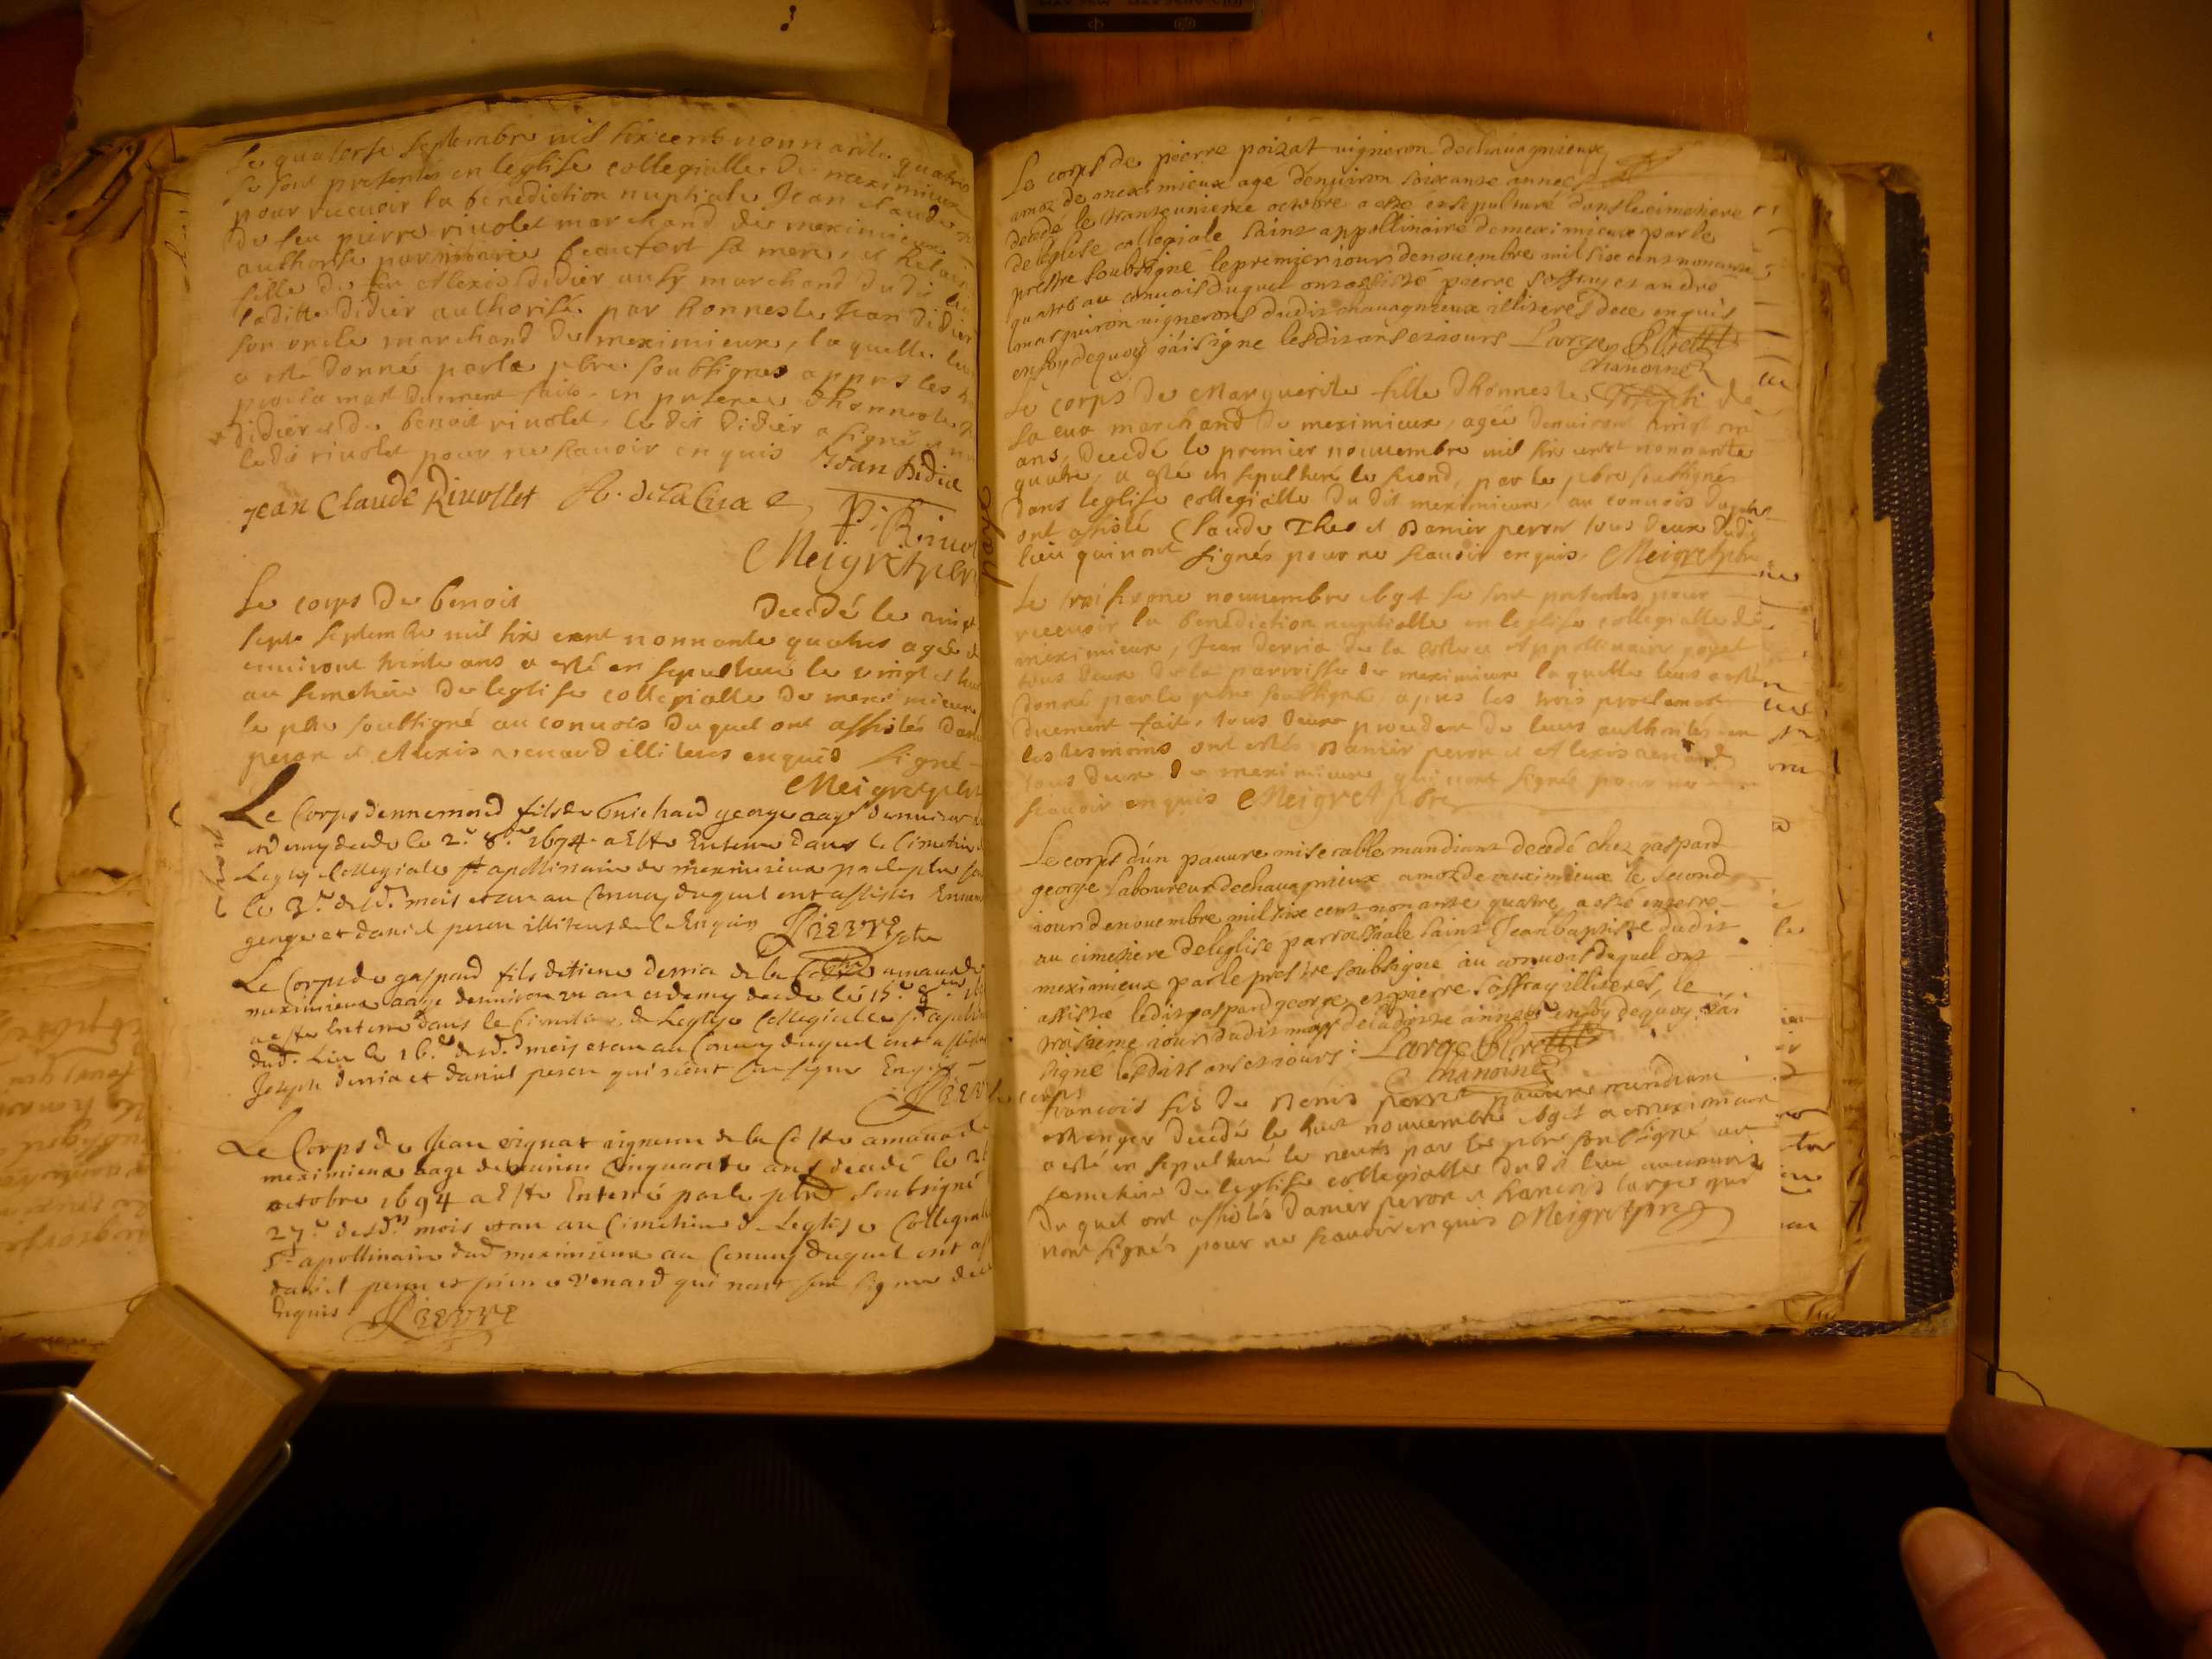 Le quatorse septembre mil six cents nonnante quatre
se sont presentés en leglise collegialle de meximieux
pour recevoir la benediction nuptiale Jean claude
de feu pierre rivolet marchand de meximieux
authorisé par marie beaufort sa mere, et
fille de feu Alexis didier aussy marchand dudit
laditte didier authorisée par honneste Jean didier
son oncle marchand de meximieux, laquelle leur
a esté donné par le pbre soubsigné appres les
proclamat duement faite en presence dhonneste
didier et de benoit rivolet, le dit didier a signé
ledit rivolet pour ne scavoir enquis Jean Didier
Jean Claude Rivollet
P. Rivol
Meigret pbre
Le corps de benoit decedé le vingt
septe septembre mil six cent nonnante quatre agé
environt trente ans a esté en sepulturé le vingt et huit
au semetiere de leglise collegialle de meximieux
le pbre soussigné au convois duquel ont assistés
peron et Alexis renaud illiteres enquis signé
Meigret pbre
Le Corps dennemond fils de Guichard george aagé denviron
et demy decede le 2.e 8.bre 1694 a Este Enterré dans le Cimetiere
Leglise Collegiale St apollinaire de meximieux par le pbre
le 3.e dud. mois et an au Convoy duquel ont assistés
george et daniel peron illiteres de ce Enquis
payé
Le Corps de gaspard fils detiene derria de la Coste amaux de
meximieux aagé denviron un an et demy decede le 15.e 8.bre
a este Enterré dans le Cimetiere de Leglise Collegiale St apoll
dud. Lieu le 16.e dud. mois et an au Convoy duquel ont assisté
Joseph derria et daniel peron qui nont sceu signer Enquis
Le Corps de Jean vignat vigneron de la Coste amaux de
meximieux aagé denviron cinquante ans decedé le 26
octobre 1694 a Este Enterré par le pbre soubsigné
27.e dud. mois et an au Cimetiere de Leglise Collegiale
St apollinaire dud meximieux au Convoy duquel ont
daniel peron et pierre renard qui nont sceu signer de ce
Enquis
Le corps de pierre poizat vigneron de chavagnieux
amoz de meximieux age denviron soixante années
decedé le trante unieme octobre a esté ensepulturé dans le cimetiere
de leglise collegiale saint appollinaire de meximieux par le
prestre soubsigné le premier iour de novembre mil six cent nonante
quatre au convois duquel ont assisté pierre soffray et andré
marguiron vignerons dudit chavagnieux illiteres de ce enquis
en foy de quoy iai signé lesdits an et iours Large
chanoine
payé
Le corps de Marguerite fille dhonneste de
la cua marchand de meximieux, agée denviront vingt
ans, decedé le premier nouvembre mil six cent nonnante
quatre, a esté en sepulturé le second, par le pbre soussigné
dans leglise collegialle du dit meximieux, au convois duquel
ont assisté Claude Theo et Danier peron tous deux dudit
lieu qui nont signés pour ne scavoir enquis. Meigret pbre
Le troisieme nouvembre 1694 se sont presentes pour
recevoir la benediction nuptialle en leglise collegialle de
meximieux, Jean derria de la coste et Appollinaire
tous deux de la parroisse de meximieux laquelle leurs a esté
donné par le pbre soussigné apres les trois proclamat
duement faite, tous deux procedant de leurs authorités
les tesmoins ont estés Danier peron et Alexis renaud
tous deux de meximieux, qui nont signés pour ne
scavoir enquis Meigret pbre
Le corps dun pauvre miserable mandiant decedé chez gaspard
george laboureur de chavagnieux amoz de meximieux le second
iour de novembre mil six cent nonante quatre, a esté enterré
au cimetiere de leglise parroissiale saint Jean baptiste dudit
meximieux par le prestre soubsigné au convois duquel ont
assisté ledit gaspard george et pierre soffray illiterés, le
troisieme iour dudit moys de ladicte année en foy de quoy iai
signé lesdits an et iours: Large
chanoine
Le corps
francois fils de Denis perret pauvre mendiant
estranger decedé le huit nouvembre 1694 a meximieux
a esté en sepulturé le neuf par le pbre soussigné au
semetiere de leglise collegialle dudit lieu au convois
du quel ont assistés Danier peron et francois large qui
nont signés pour ne scavoir enquis Meigret pbre